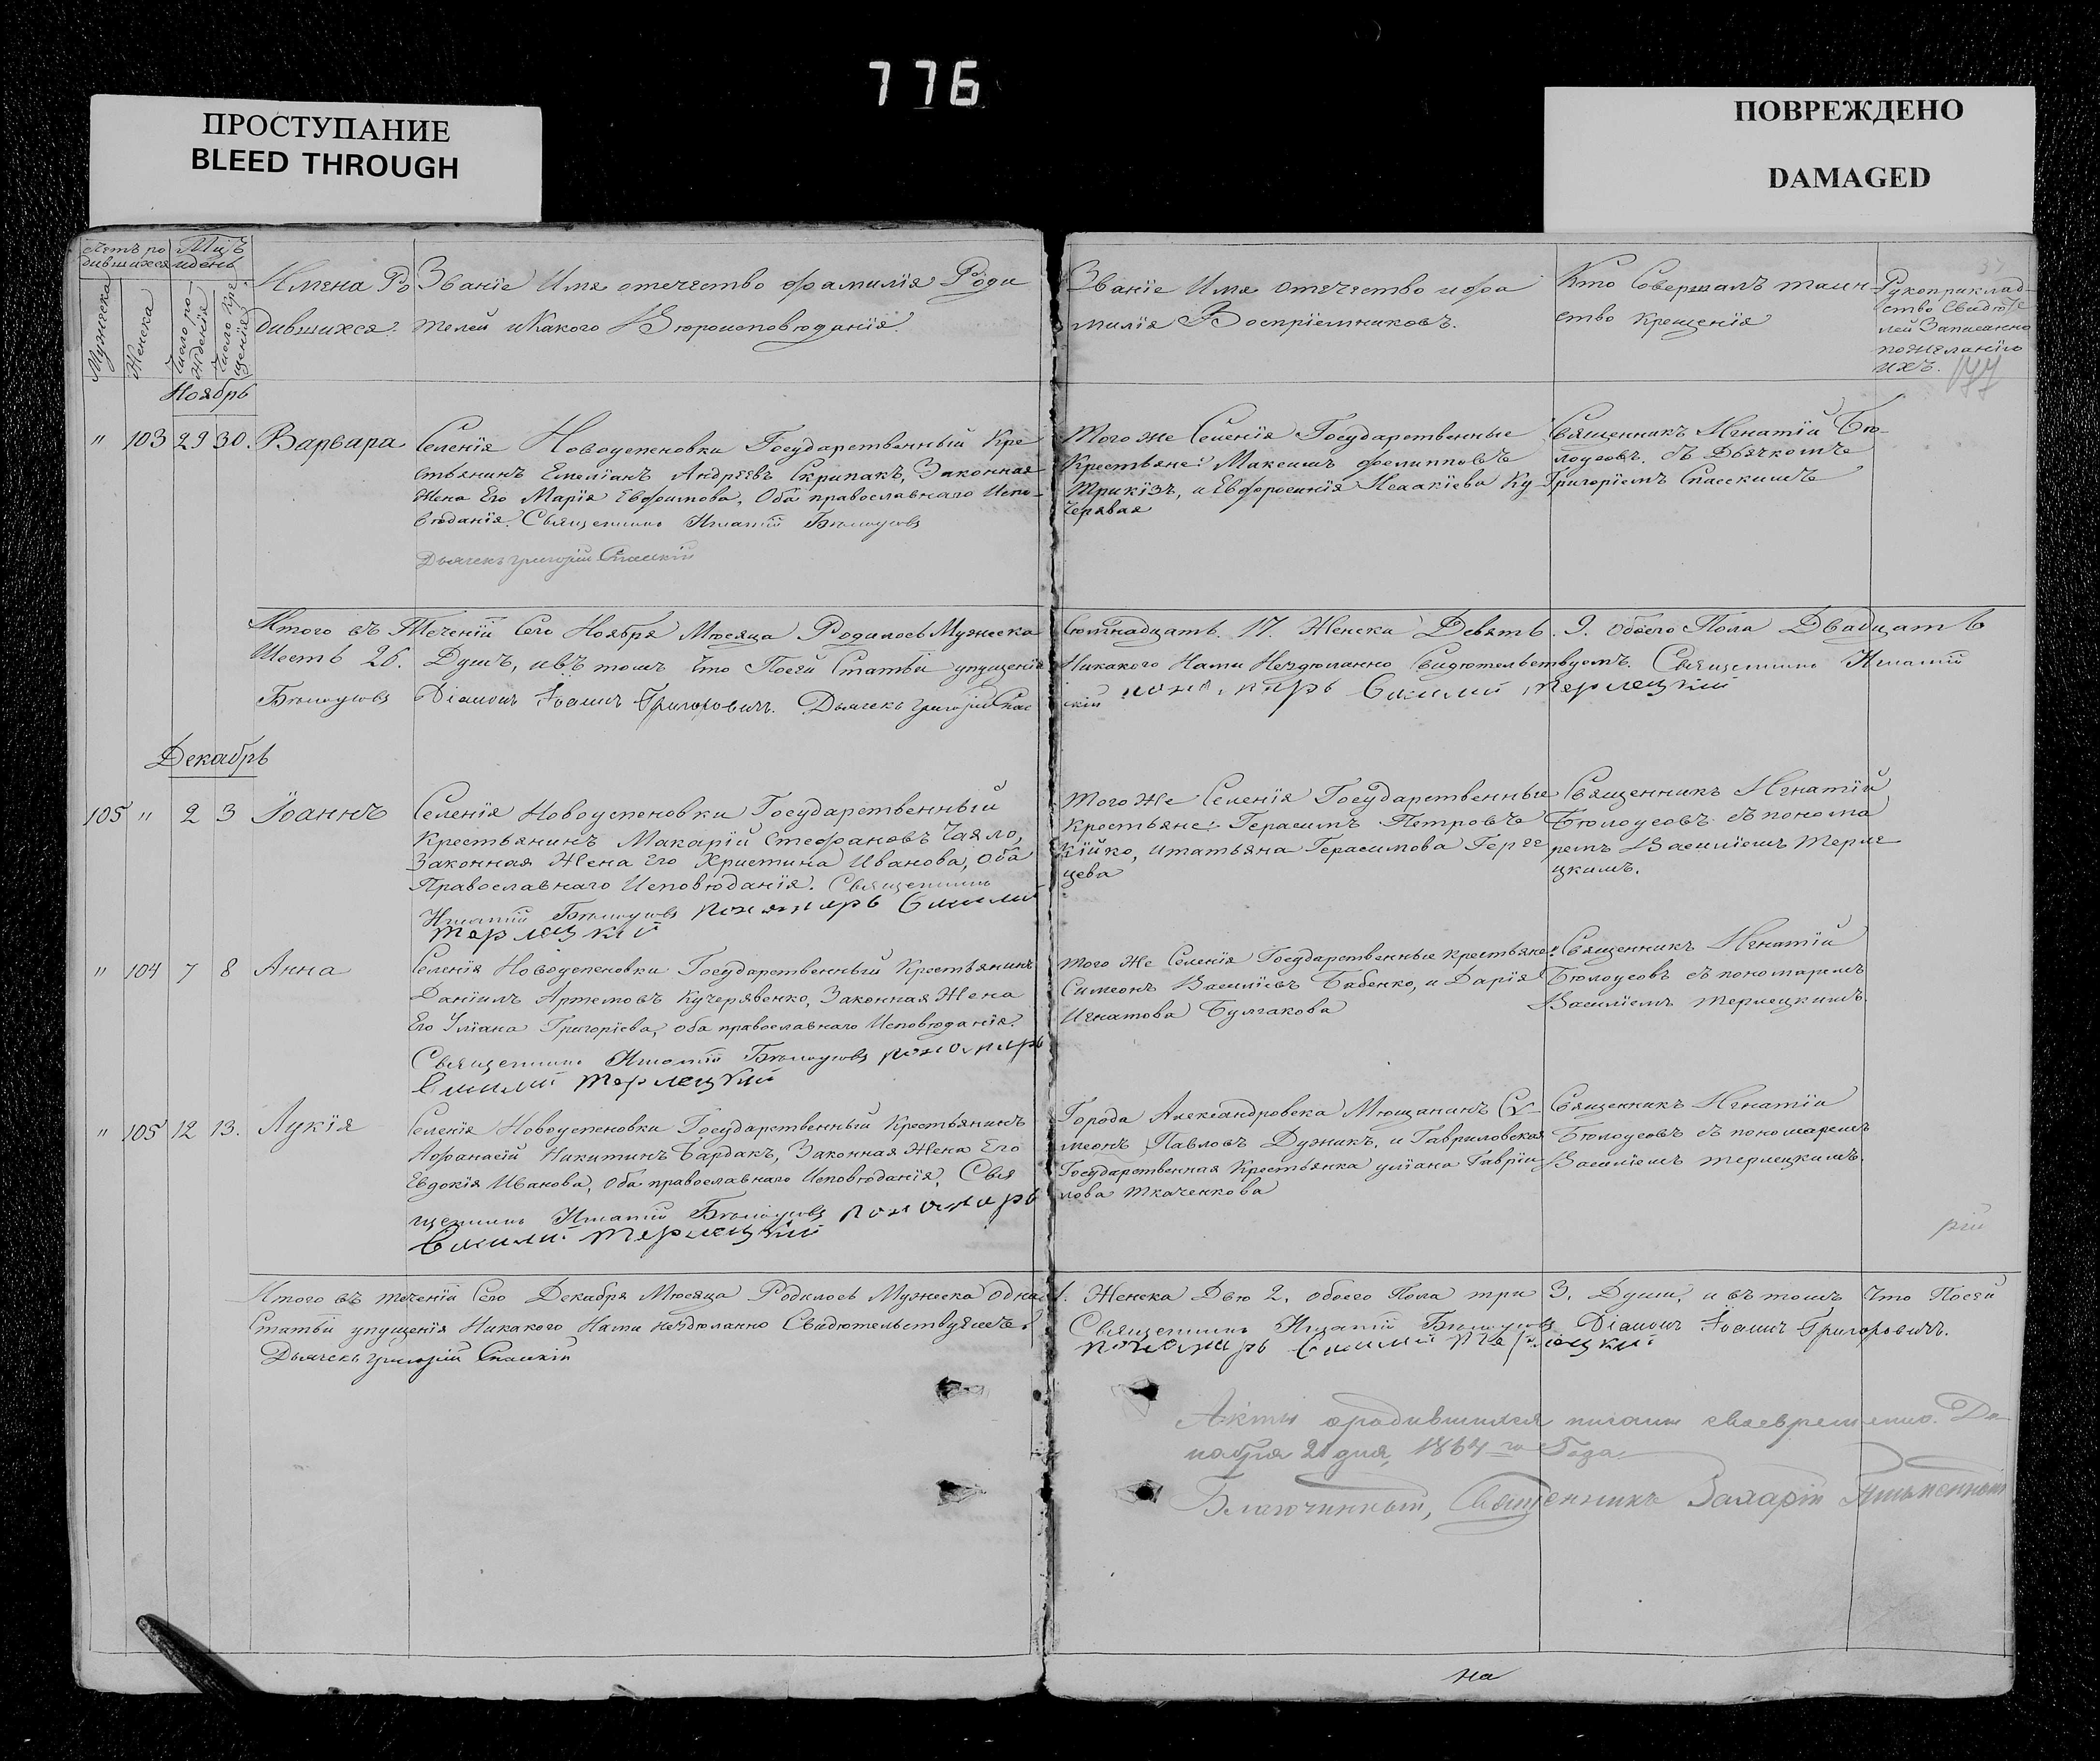 776
ПРОСТУПАНИЕ
BLEED THROUGH
ПОВРЕЖДЕНО
DAMAGED
Счетъ ро
дившихся
Мужеска
Женска
Мцъ
и день
Число ро-
жденія
Число Кре
щенія
Имена Ро
дившихся.
Званіе Имя отечество фамилія Роди
телей и Какого Вѣроисповѣданія.
Званіе Имя Отечество и фа
милія Воспріемниковъ.
Кто Совершалъ таин-
ство Крещенія
Рукоприклад-
ство Свидѣте
лей Записанно
по желанію
ихъ.
177
Ноябрь
" 103 29 30. Варвара
Селенія Новоуспеновки Государственный Кре
стьянинъ Емеліанъ Андреевъ Скрипакъ, Законная
Жена Его Марія Евфимова, Оба православнаго Испо-
вѣданія. Священникъ Игнатій Бѣлоусовъ
Дьячекъ Григорій Спасскій
Того же Селенія Государственные
Крестьяне: Максимъ Филипповъ
Трикізъ, и Евфросинія Исаакіева Ку-
черявая
Священникъ Игнатій Бѣ-
лоусовъ. съ Дьячкомъ
Григоріемъ Спасскимъ
Итого въ Теченіи Сего Ноября Мѣсяца Родилось Мужеска Сѣмнадцать. 17. Женска Девять. 9. обоего Пола Двадцать
Шесть 26. Душъ, и въ томъ Что Посей Статьи упущенія Никакого Нами Нездѣланно Свидѣтельствуемъ. Священникъ Игнатій
Бѣлоусовъ Діаконъ Іоаннъ Григоровичъ. Дьячекъ Григорій Спас
скій пономарь Василій Терлецкій
Декабрь
105 " 2 3 Іоаннъ
Селенія Новоуспеновки Государственный
Крестьянинъ Макарій Стефановъ Чаяло,
Законная Жена Его Христина Иванова, Оба
Православнаго Исповѣданія. Священникъ
Игнатій Бѣлоусовъ пономарь Василій
Терлецкій
Того Же Селенія Государственные
Крестьяне: Герасимъ Петровъ
Кійко, и татьяна Герасимова
цева
Священникъ Игнатій
Бѣлоусовъ съ понома
ремъ Василіемъ Терле
цкимъ.
" 104 7 8 Анна
Селенія Новоуспеновки Государственный Крестьянинъ
Даніилъ Артемовъ Кучерявенко, Законная Жена
Его Уліана Григорієва, оба православнаго Исповѣданія.
Священникъ Игнатій Бѣлоусовъ пономарь
Василій Терлецкій
Того Же Селенія Государственные Крестьяне:
Симеонъ Василіевъ Бабенко, и Дарія
Игнатова Булгакова
Священникъ Игнатій
Бѣлоусовъ съ пономаремъ
Василіемъ Терлецкимъ.
" 105 12 13. Лукія
Селенія Новоуспеновки Государственный Крестьянинъ
Афанасій Никитинъ Бардакъ, Законная Жена Его
Евдокія Иванова, Оба православнаго Исповѣданія, Свя
щенникъ Игнатій Бѣлоусовъ пономарь
Василій Терлецкій
Города Александровска Мѣщанинъ Сѵ-
меонъ Павловъ Дужикъ, и Гавриловская
Государственная Крестьянка уліана Гавріи
лова Ткаченкова
Священникъ Игнатій
Бѣлоусовъ съ пономаремъ
Василіемъ Терлецкимъ.
рій
Итого въ теченіи Сего Декабря Мѣсяца Родилось Мужеска Одна 1. Женска Двѣ 2, обоего Пола три 3, Души, и въ томъ Что Посей
Статьи упущенія Никакого Нами нездѣланно Свидѣтельствуемъ. Священникъ Игнатій Бѣлоусовъ Діаконъ Іоаннъ Григоровичъ.
Дьячекъ Григорій Спаскій пономарь Василій Терлецкій
Акты о родившихся писаны своевременно. Де-
кабря 21 дня, 1864 го Года
Благочинный, Священникъ Захарій
на